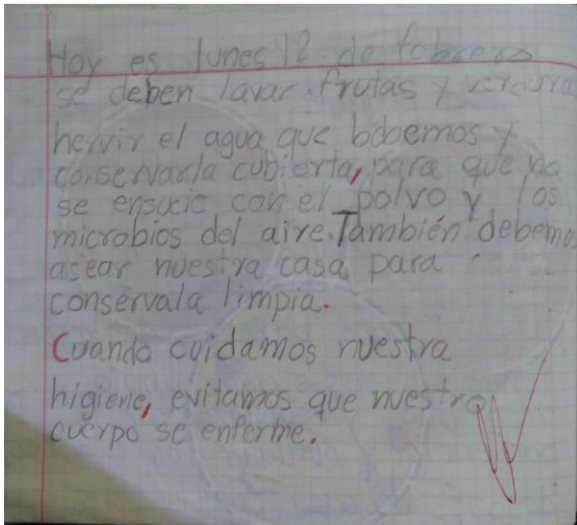 Hoy es lunes 12 de febrero
se deben lavar frutas y verdura
hervir el agua que bebemos y
conservarla cubierta, para que no
se ensucie con el polvo y los
microbios del aire. También debemo
asear nuestra casa para
conservala limpia.
Cuando cuidamos nuestra
higiene, evitamos que nuestro
cuerpo se enferme.